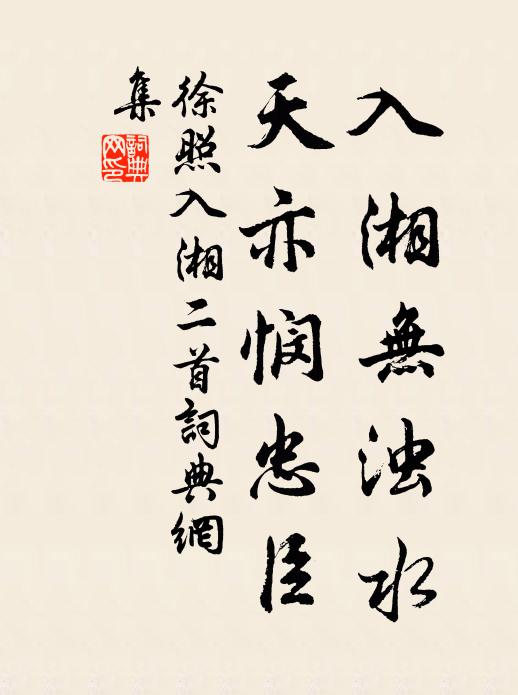 入湘無浊水
天亦悯忠臣
徐照入湘二首詞典網
集
詞典
网印